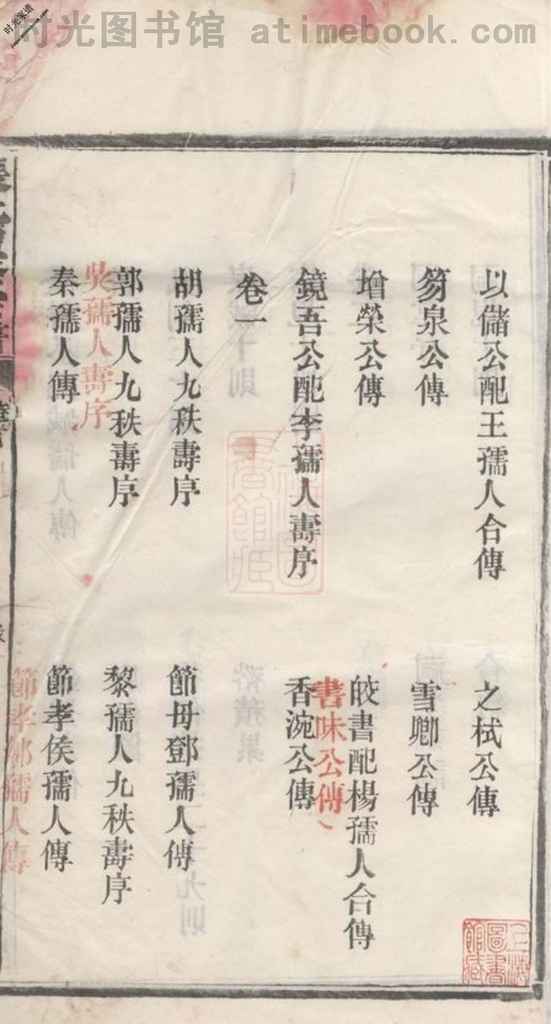 时光图书馆 atimebook.com
以儲公配王孺人合傳
之栻公傳
笏泉公傳
雪卿公傳
增榮公傳
皎書配楊孺人合傳
書味公傳
鏡吾公配李孺人壽序
香涴公傳
卷一
胡孺人九秩壽序
節母鄧孺人傳
郭孺人九秩壽序
黎孺人九秩壽序
吳孺人壽序
秦孺人傳
節孝侯孺人傳
節孝鄧孺人傳